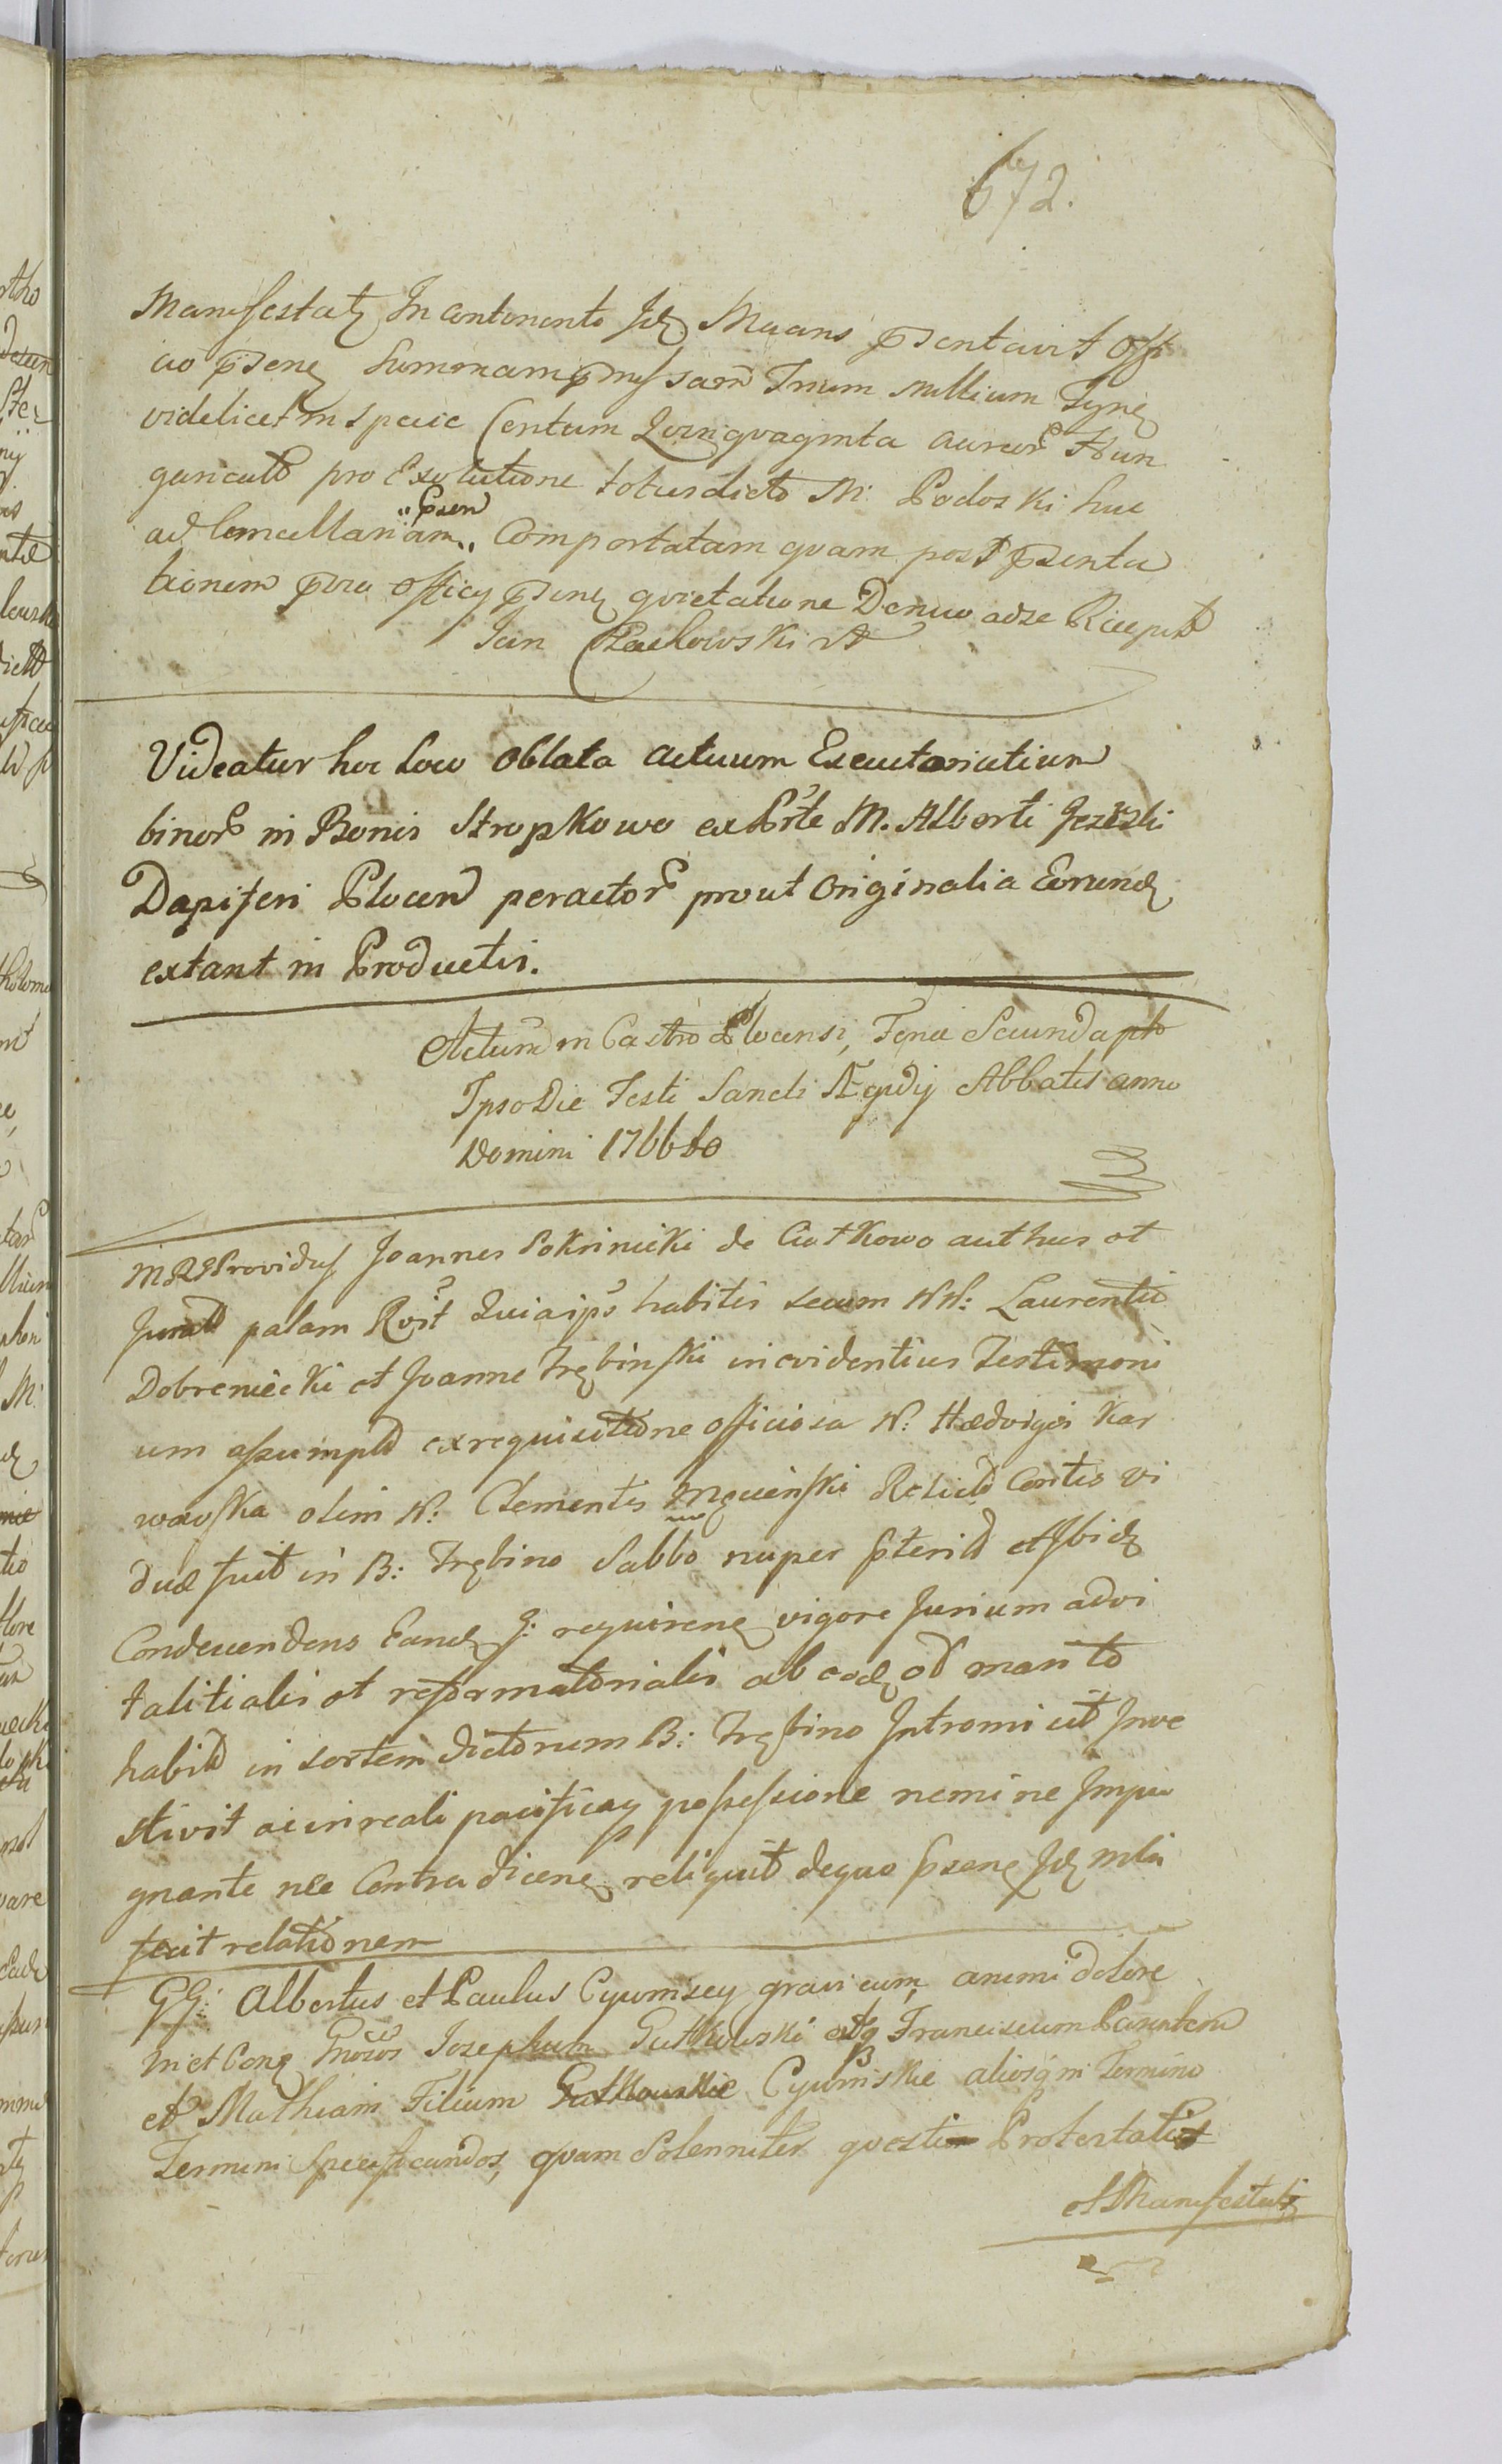 672.
Manifestatq In continenti Idq Maans pŝentavit Offi
cio pŝenq Summam pmissam Trium Millium Tynq
videlicet in specie Centum Quinquaginta Aureor Hun
garicalt pro Exolutione totiesdicto M: Podoski huc
ad Cancellariam „ pŝen „ Comportatam quam post pŝenta
tionem Officy pŝenq quietatione Denuo ad se Recepit
Jan Czachowski
Videatur hoc Loco Oblata Actuum Executorialium
binor in Bonis Stropkowo ex Prte M. Alberti Jezeski
Dapiferi Plocen peractor prout Originalia Eorundq
extant in Productis.
Actum in Castro Plocensi, Feria Secunda pto
Ipso Die Festi Sancti Ægidij Abbatis anno
Domini 1766to
MRS Providus Joannes Sokrinicki de Ciotkowo authus et
Jurat palam Rvit Quia ips habitis secum NN: Laurentio
Dobreniecki et Joanne Trębinski in evidentius Testimoni
um assumpt ex requisitione officiosa N: Hædvigis Kar
wowska olim N: Clementis Mącienski Relict Contis vi
duæ fuit in B: Trębino Sabbo nuper pŝterit et Ibidq
Condescendens Eandq G: requirenq vigore Jurium advi
talitialis et reformatorialis ab eodq od marito
habit in sortem dictorum B: Trębino Intromisit Inve
stivit ac in reali pacificaq possessione nemine Impu
gnante nec Contradicenq reliquit dequo pŝenq Idq mlri
fecit relationem
GG: Albertus et Paulus Cyumiscy gravi cum animi dolore
in et Conq Gnosos Josephum Gutkowski Franciscum Parentem
et Mathiam Filium Gutkowskie Cyumiskie aliosq in Termino
Termini specificandos, quam Solenniter questi Protestati
et Manifestatq